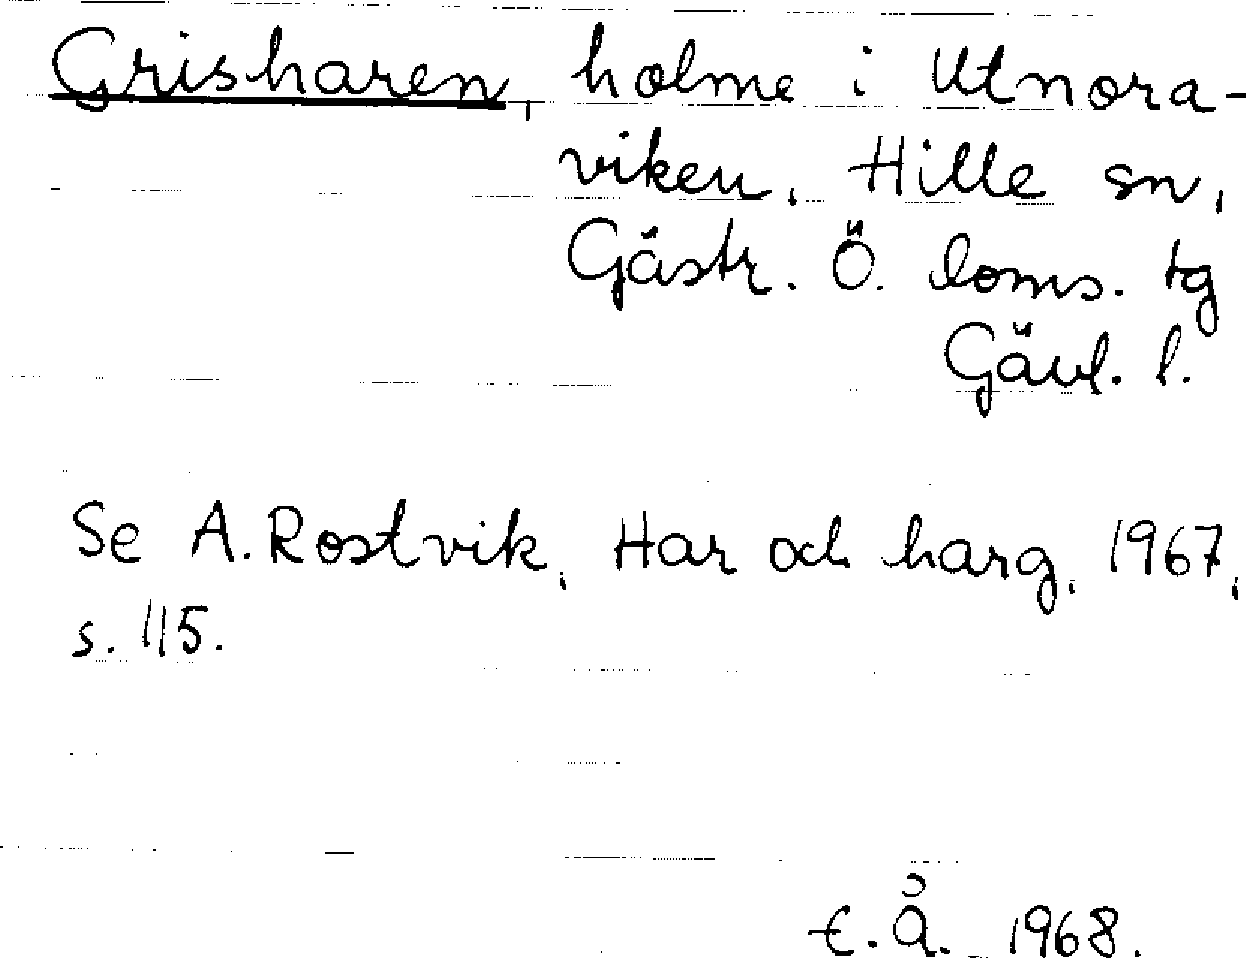 Grisharen, holme i Utnora-
viken, Hille sn,
Gästr. Ö. doms. tg
Gävl. l.
Se A. Rostvik, Har och harg, 1967,
s. 115.
E. Å. 1968.